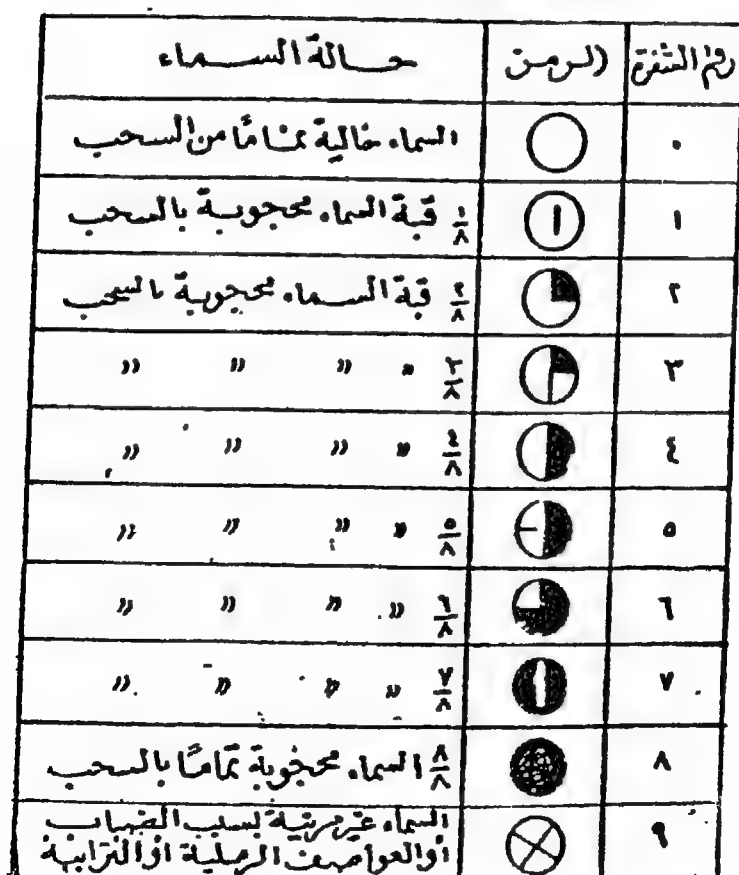 رقم الشفرة الرمز حالة السماء
٠ السماء خالية تمامًا من السحب
١ ١/٨ قبة السماء محجوبة بالسحب
٢ ٢/٨ قبة السماء محجوبة بالسحب
٣ ٣/٨ " " " "
٤ ٤/٨ " " " "
٥ ٥/٨ " " " "
٦ ٦/٨ " " " "
٧ ٧/٨ " " " "
٨ ٨/٨ السماء محجوبة تمامًا بالسحب
٩ السماء غير مرئية بسبب الضباب
أو العواصف الرملية أو الترابية